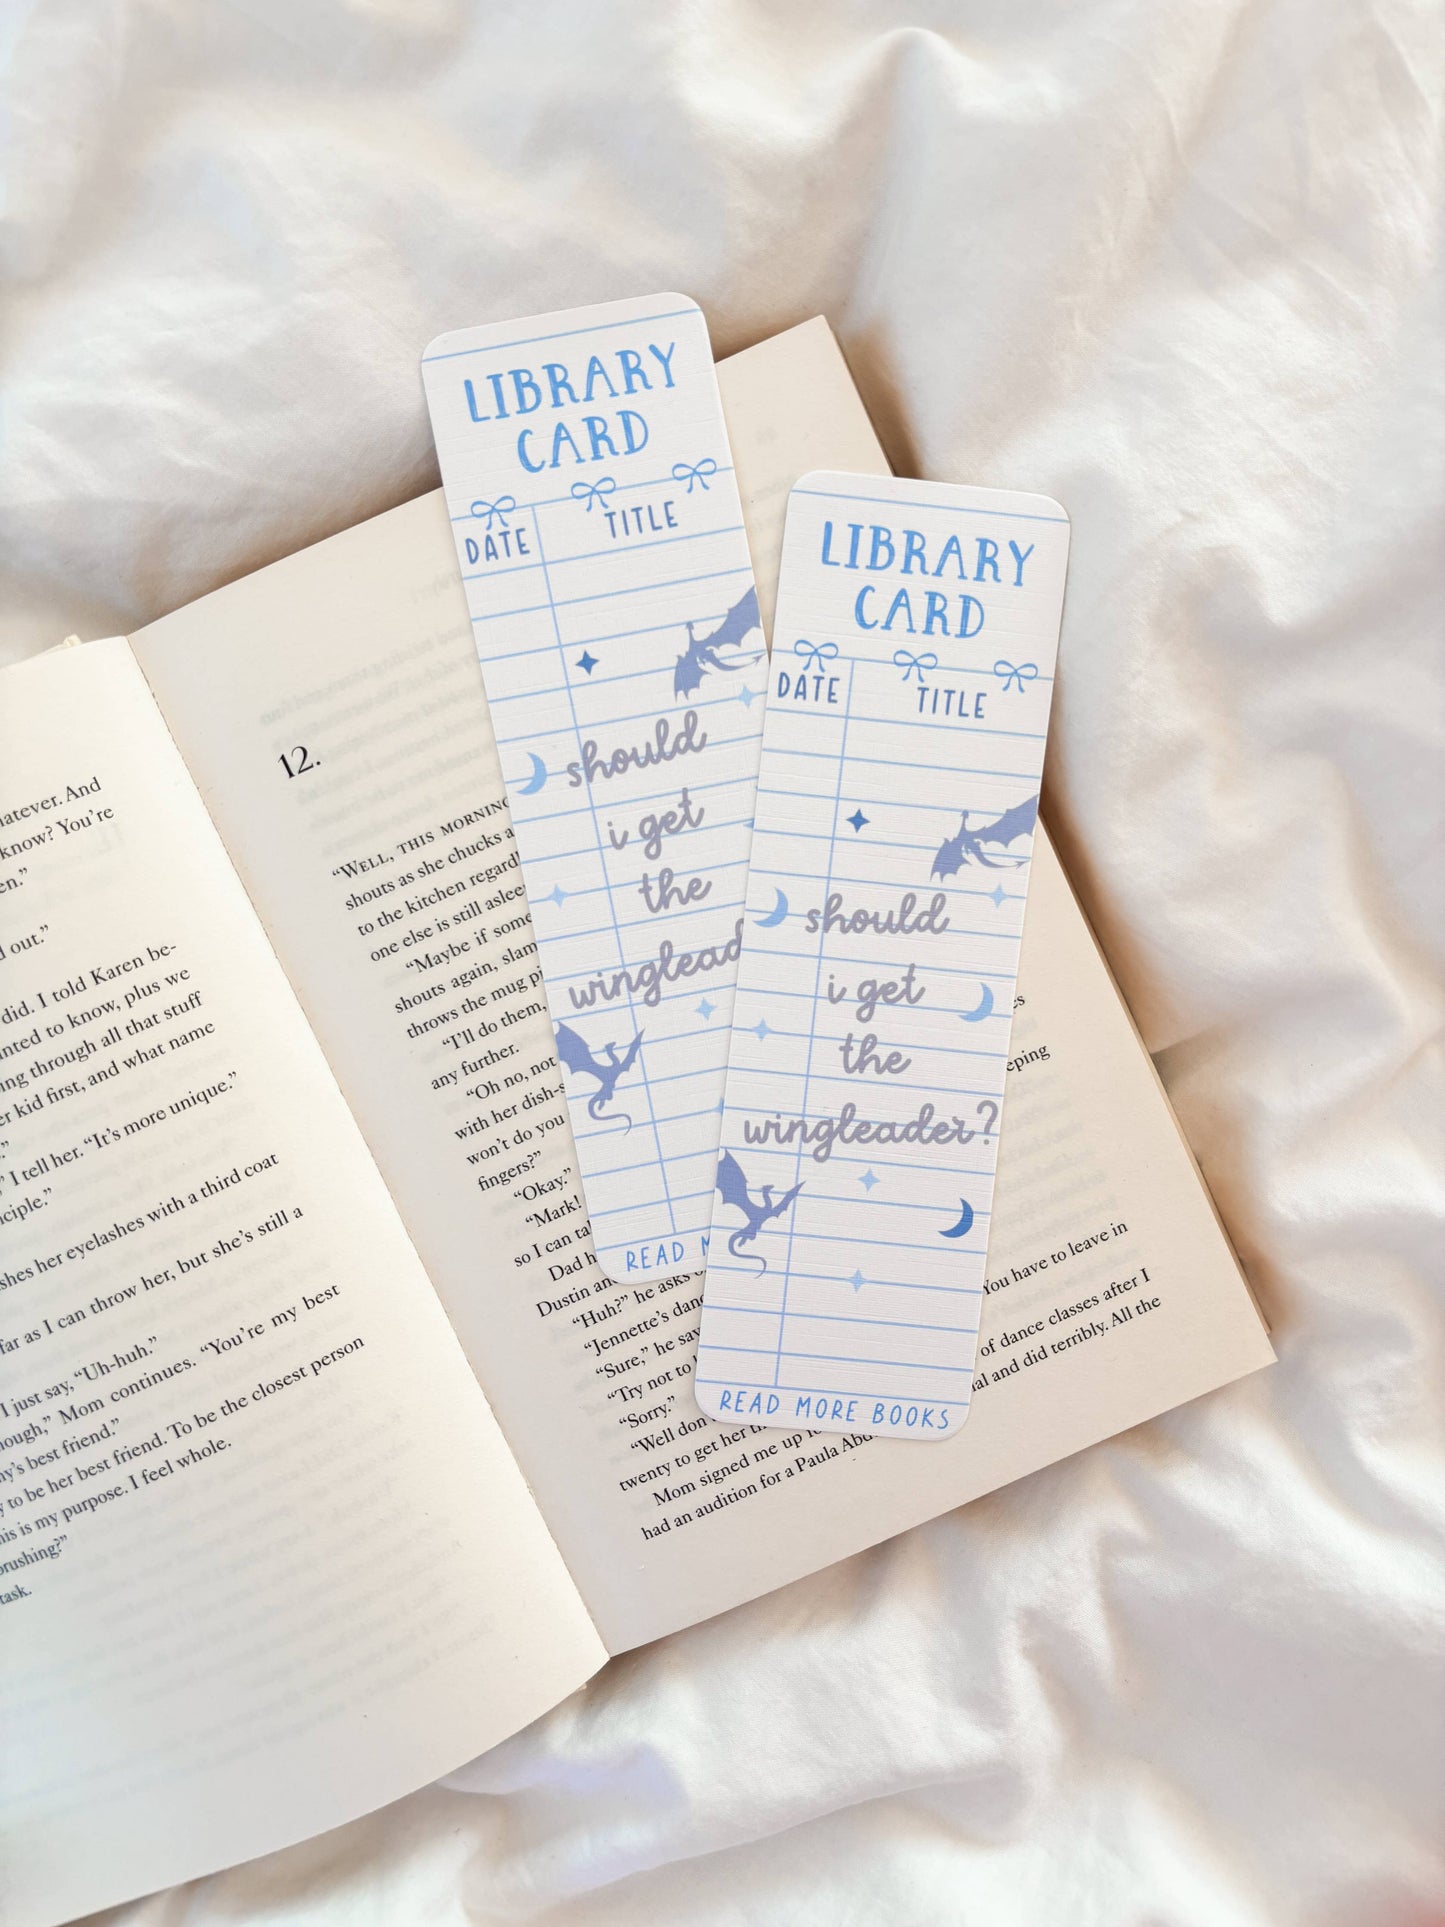 LIBRARY
CARD
DATE TITLE
should
i get
the
wingleade
READ
LIBRARY
CARD
DATE TITLE
should
i get
the
wingleader?
READ MORE BOOKS
hatever. And
know? You're
en."
d out."
did. I told Karen be-
nted to know, plus we
ing through all that stuff
er kid first, and what name
."
" I tell her. "It's more unique."
ciple."
shes her eyelashes with a third coat
far as I can throw her, but she's still a
I just say, "Uh-huh."
hough," Mom continues. "You're my best
my's best friend."
y to be her best friend. To be the closest person
his is my purpose. I feel whole.
brushing?"
task.
12.
"WELL, THIS MORNING
shouts as she chucks a
to the kitchen regard
one else is still aslee
"Maybe if some
shouts again, slam
throws the mug pi
"I'll do them,
any further.
"Oh no, not
with her dish-s
won't do you
fingers?"
"Okay."
"Mark!
so I can ta
Dad h
Dustin an
"Huh?" he asks
"Jennette's danc
"Sure," he say
"Try not to
"Sorry."
"Well don
twenty to get her th
Mom signed me up fo
had an audition for a Paula Abd
es
eping
You have to leave in
of dance classes after I
nal and did terribly. All the